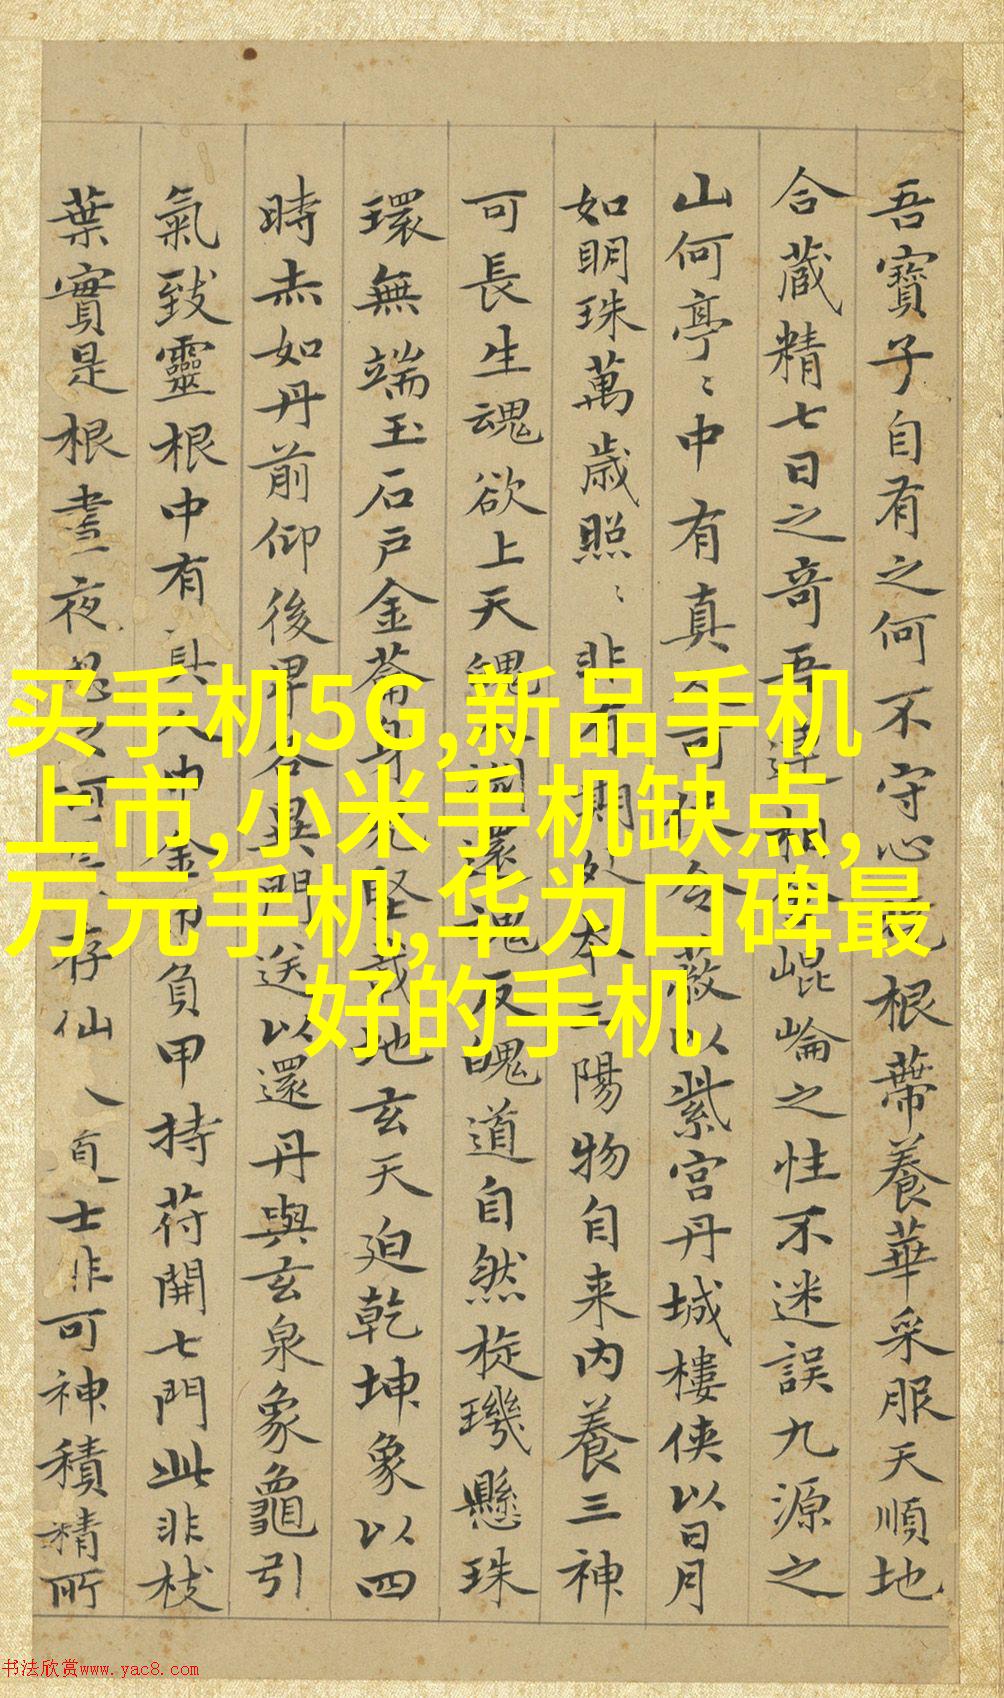 吾寶子自有之何不守心根蔕養華采服天順地
合蔵精七日之竒吾連相崐崘之性不迷誤九源之
山何亭〻中有真可使令蔽以紫宫丹城樓俠以日月
如明珠萬歳照〻非有期处本三陽物自来内養三神
可長生魂欲上天魄還魂反魄道自然旋璣懸珠
環無端玉石戸金籥身完堅載地玄天迫乾坤象以四
時赤如丹前仰後卑各異門送以還丹與玄泉象龜引
氣致靈根中有真人巾金巾負甲持苻開七門此非枝
葉實是根晝夜思存仙人道士非可神積精所
买手机5G,新品手机
上市,小米手机缺点,
万元手机,华为口碑最
好的手机
书法欣赏www.yac8.com